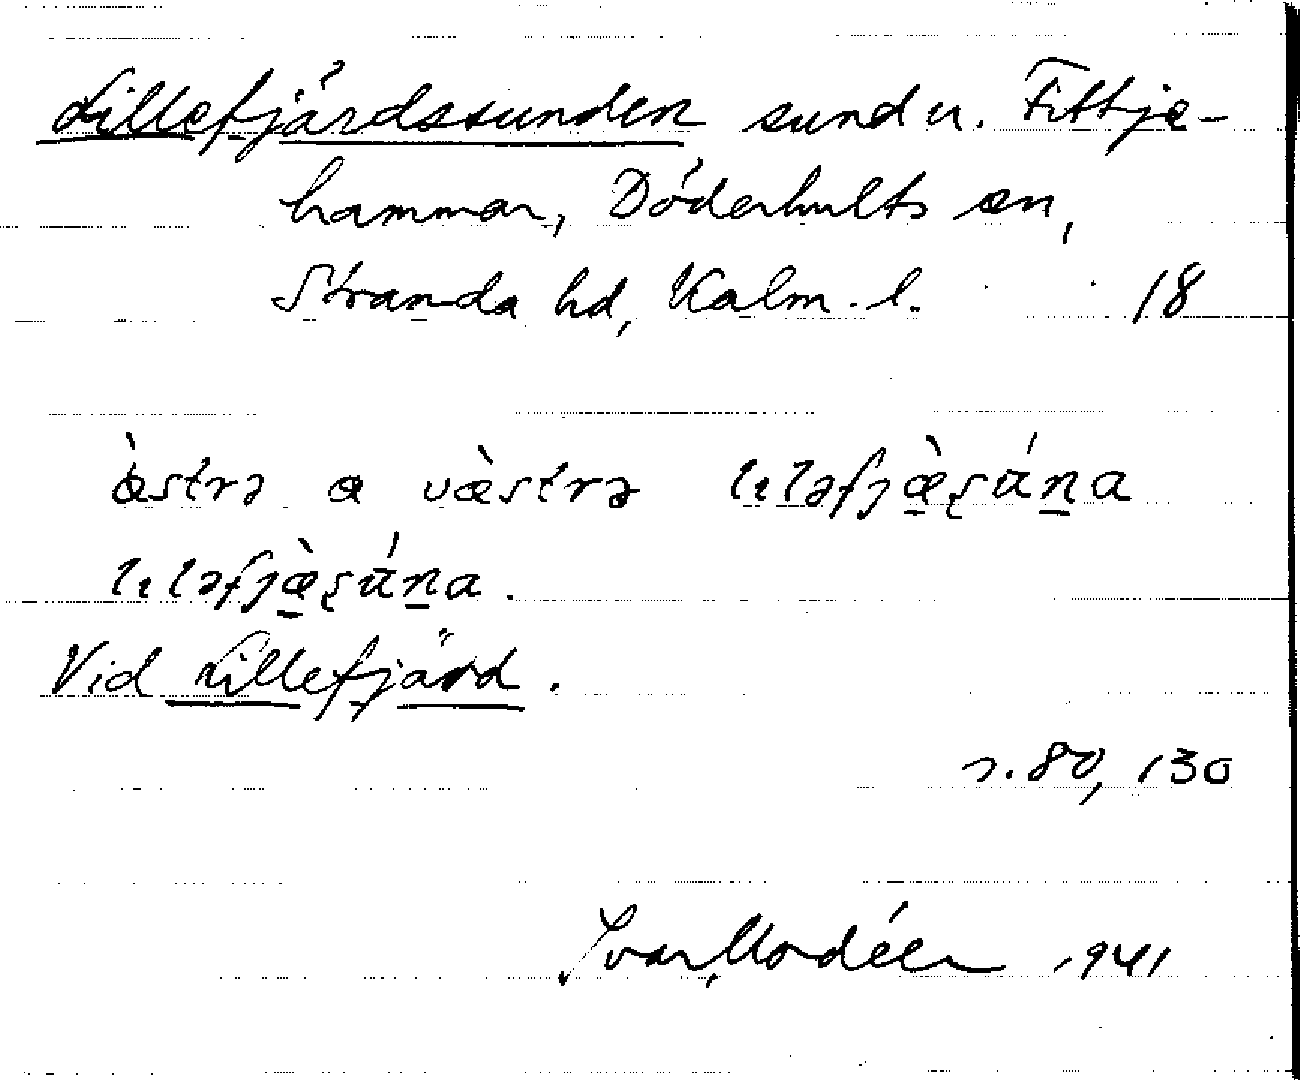 Lillefjärdssunden sund u. Fittje-
hammar, Döderhults sn,
Stranda hd, Kalm. l. 18
æ̀strə a væ̀strə lɩləfjæ̠̀ʂún̠a
lɩləfjæ̠̀ʂún̠a.
Vid Lillefjärd.
s. 80, 130
Ivar Modéer 1941